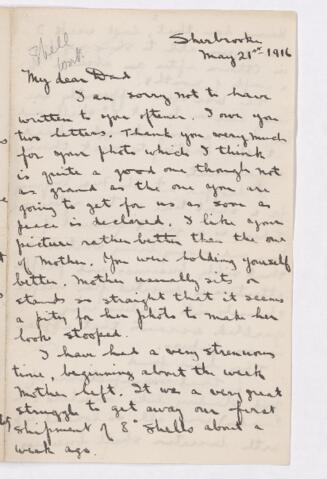 Shell work
Sherbrooke
May 21st 1916
My dear Dad
I am sorry not to have
written to you oftener. I owe you
two letters. Thank you very much
for your photo which I think
is quite a good one though not
as grand as the one you are
going to get for us as soon as
peace is declared. I like your
picture rather better than the one
of Mother. You were holding yourself
better. Mother usually sits or
stands so straight that it seems
a pity for her photo to make her
look stooped.
I have had a very strenuous
time, beginning about the week
Mother left. It was a very great
struggle to get away our first
shipment of 8" shells about a
week ago.